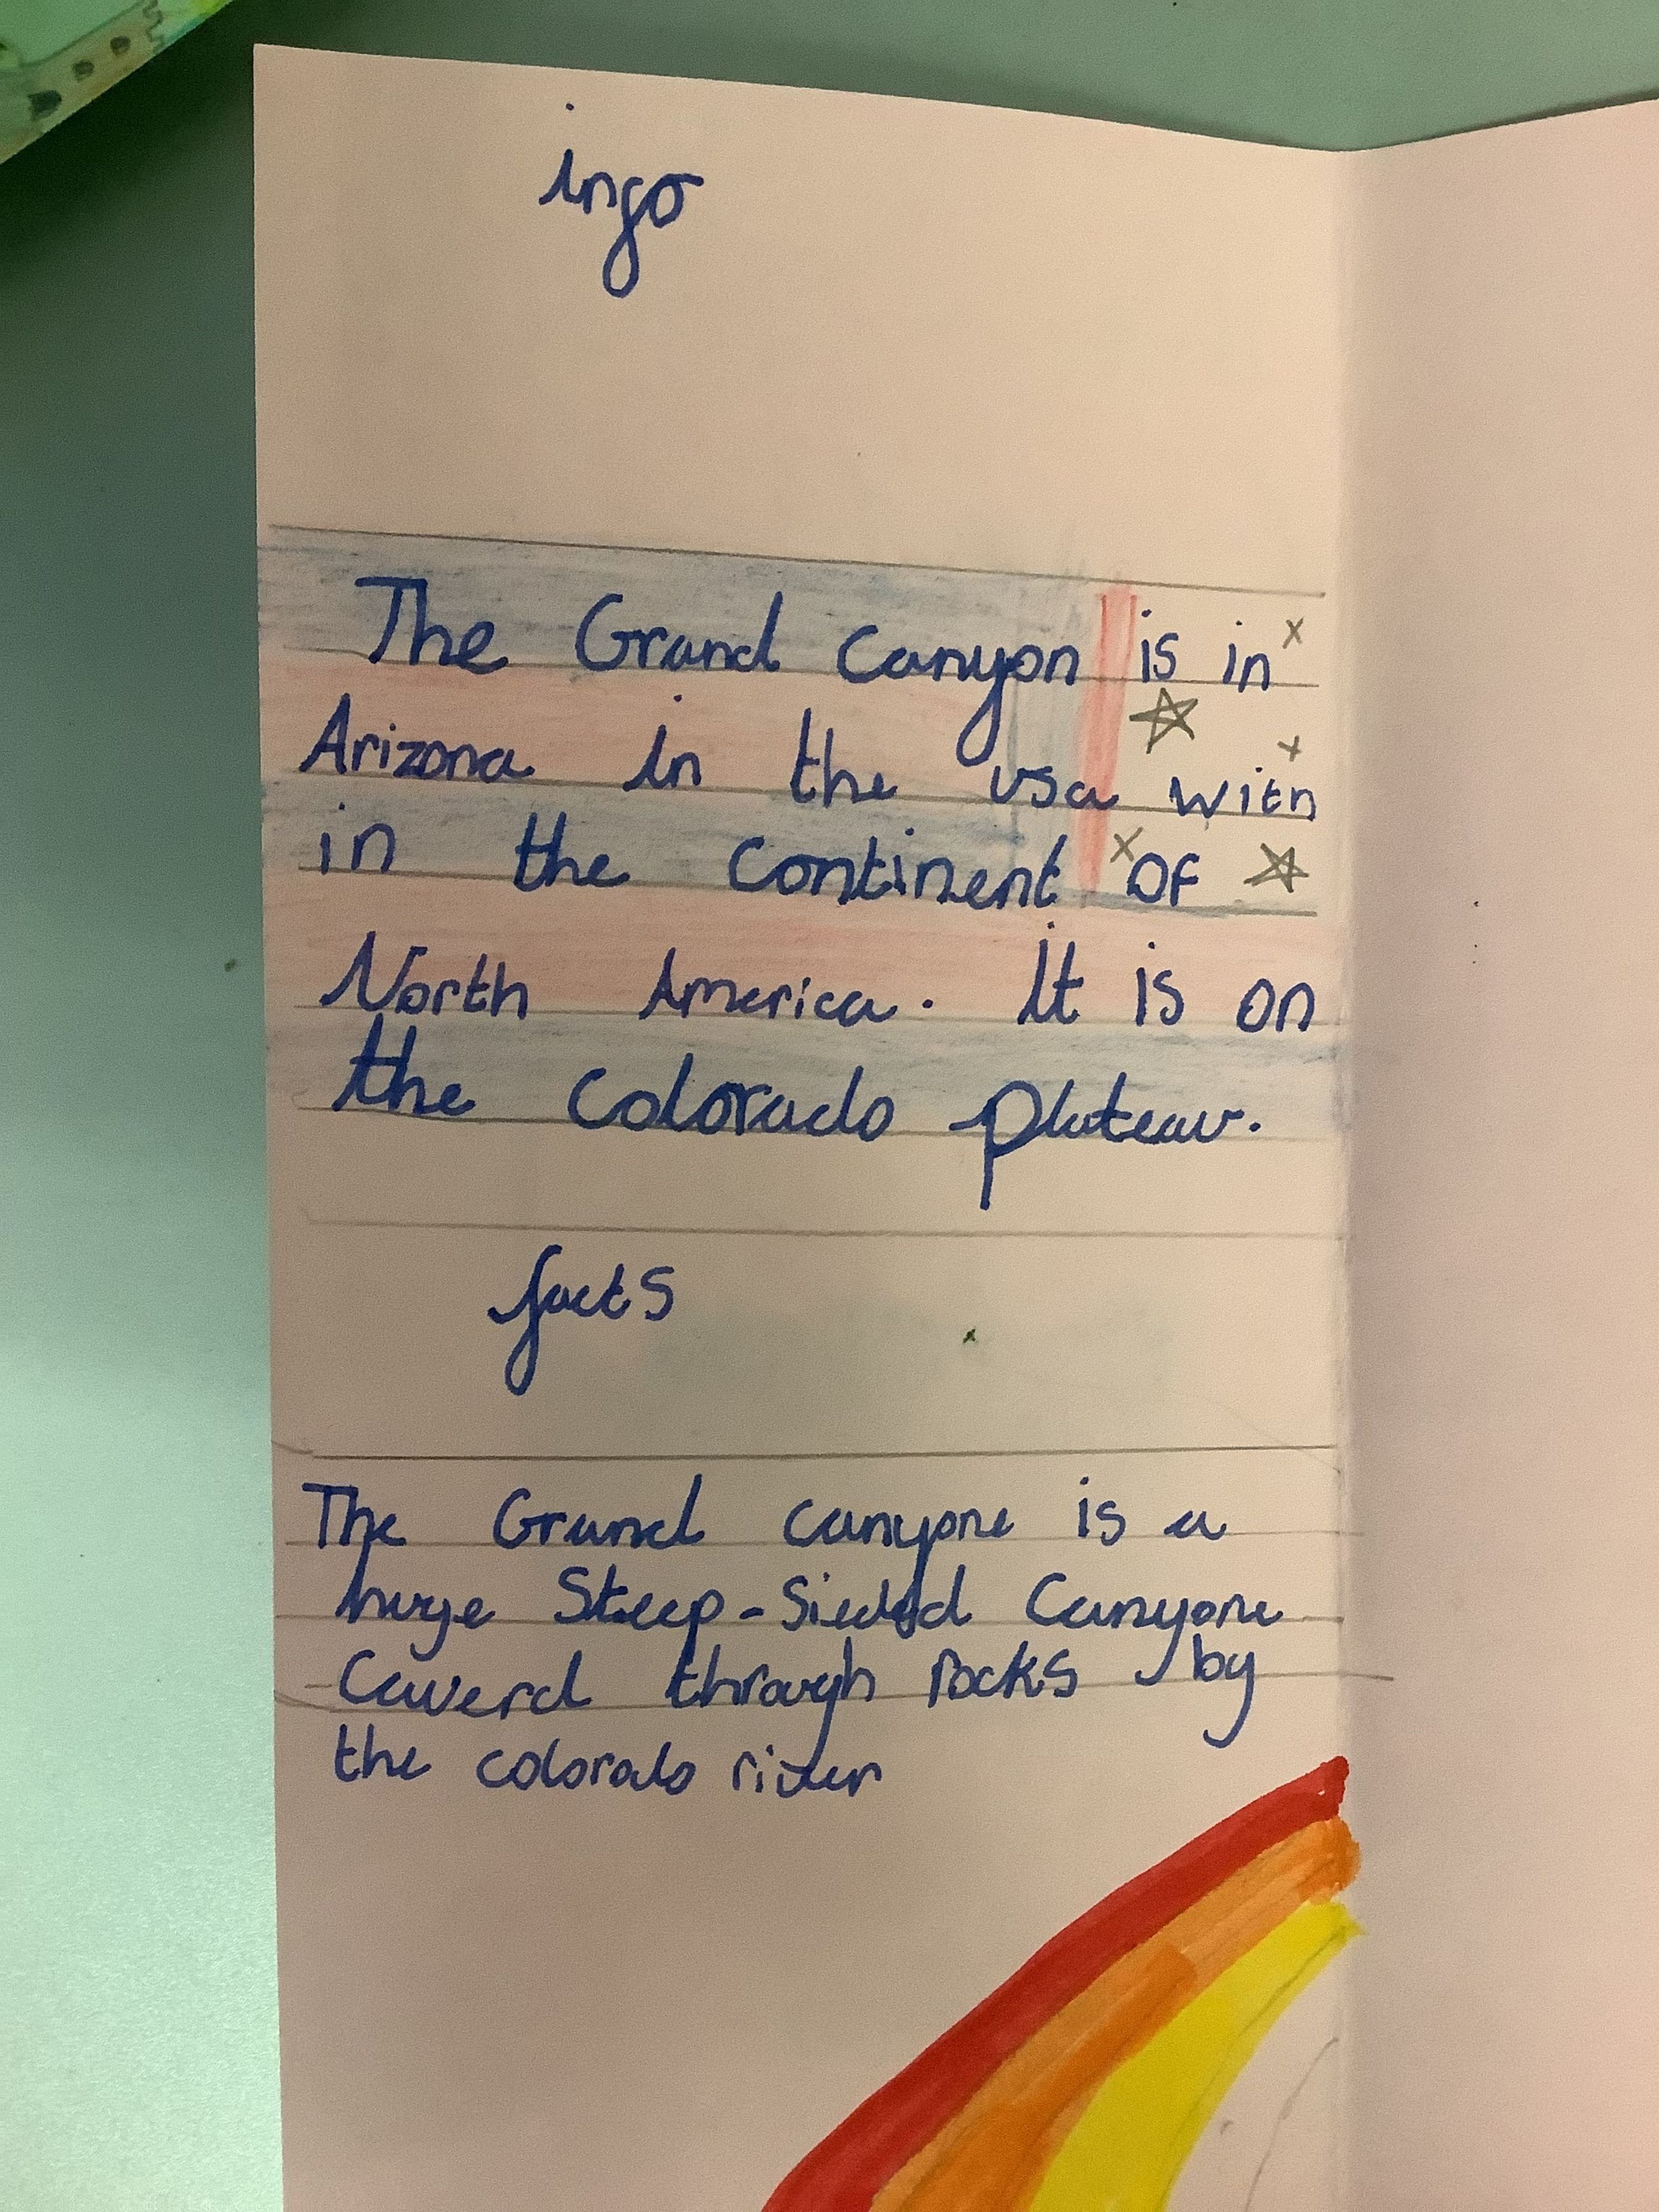 info
The Grand Canyon is in
Arizona in the usa with
in the continent of
North America. It is on
the Colorado plateau.
facts
The Grand canyone is a
huge Steep-Sieded Canyone
Caverd through rocks by
the colorado river